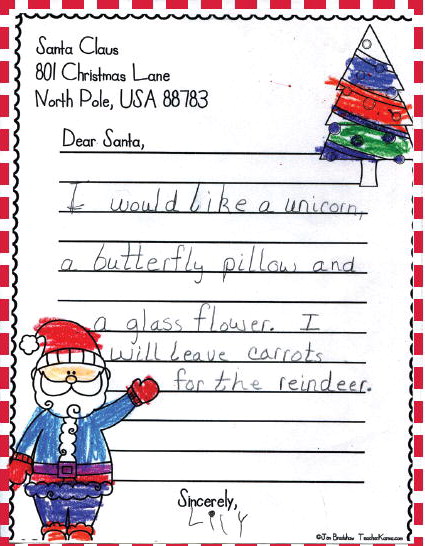 Santa Claus
801 Christmas Lane
North Pole, USA 88783
Dear Santa,
I would like a unicorn,
a butterfly pillow and
a glass flower. I
will leave carrots
for the reindeer.
Sincerely,
Lily
©Jen Bradshaw TeacherKarma.com